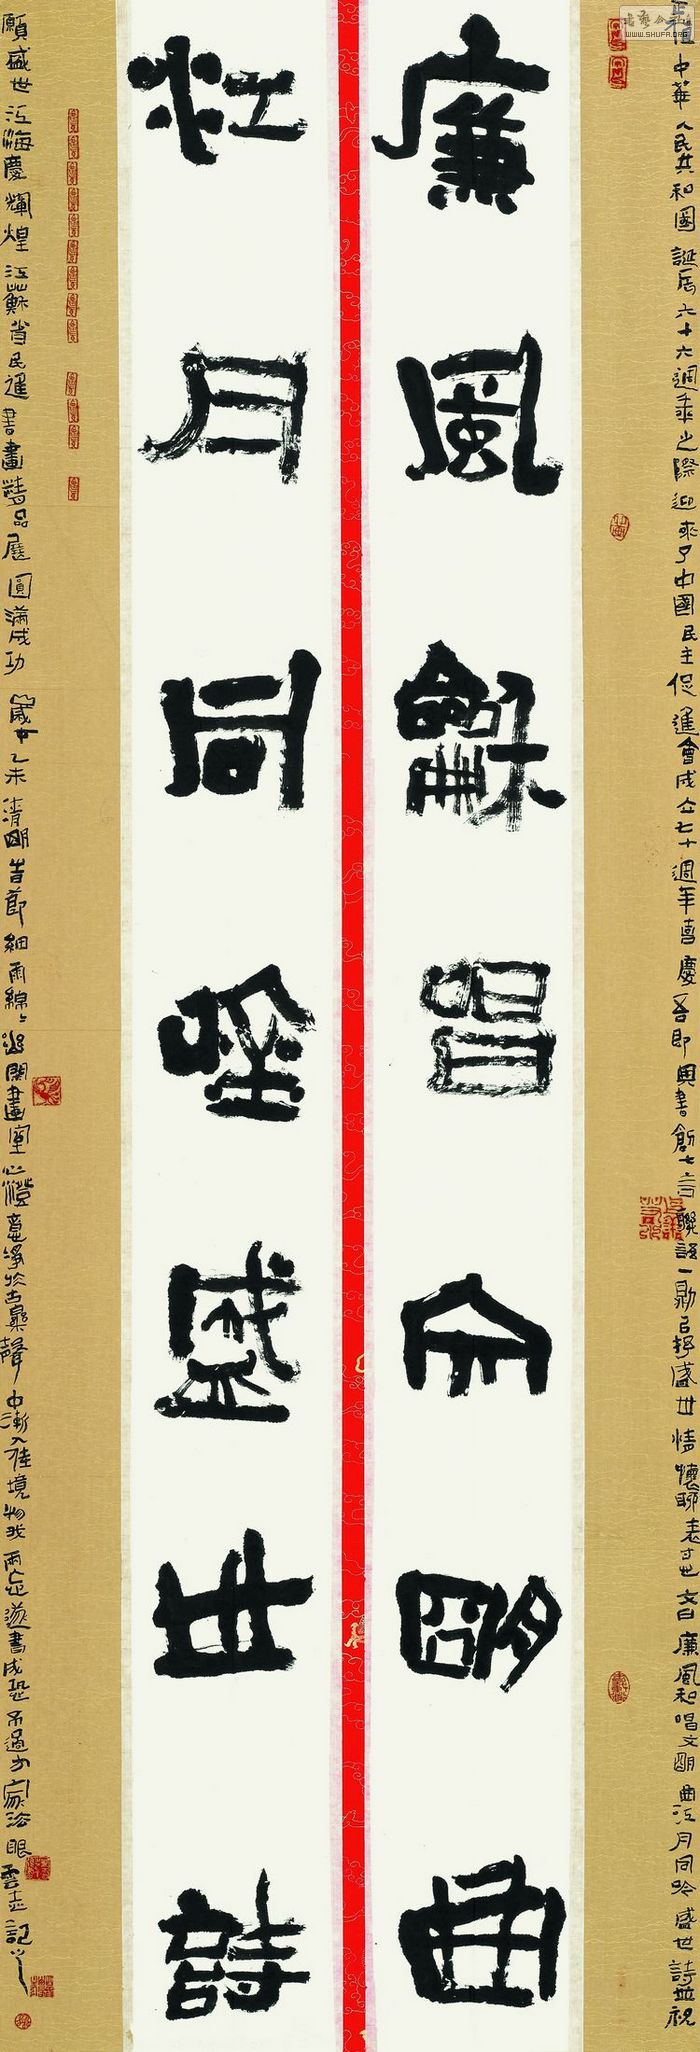 廉風龢唱文明曲
江月同唫盛世詩
正值中華人民共和國誕辰六十六週年之際迎來了中國民主促進會成立七十週年喜慶吾即興書創七言聯語一勛以抒盛世情懷聊表寸心文曰廉風和唱文明曲江月同吟盛世詩並祝
願盛世江海慶輝煌江蘇省民進書畫精品展圓滿成功歲在乙未清明時節細雨綿綿游閑畫室心澄意淨於古琴聲中漸入佳境物我兩忘遂書成恐不過方家法眼雲志記之
WWW.SHUFA.ORG